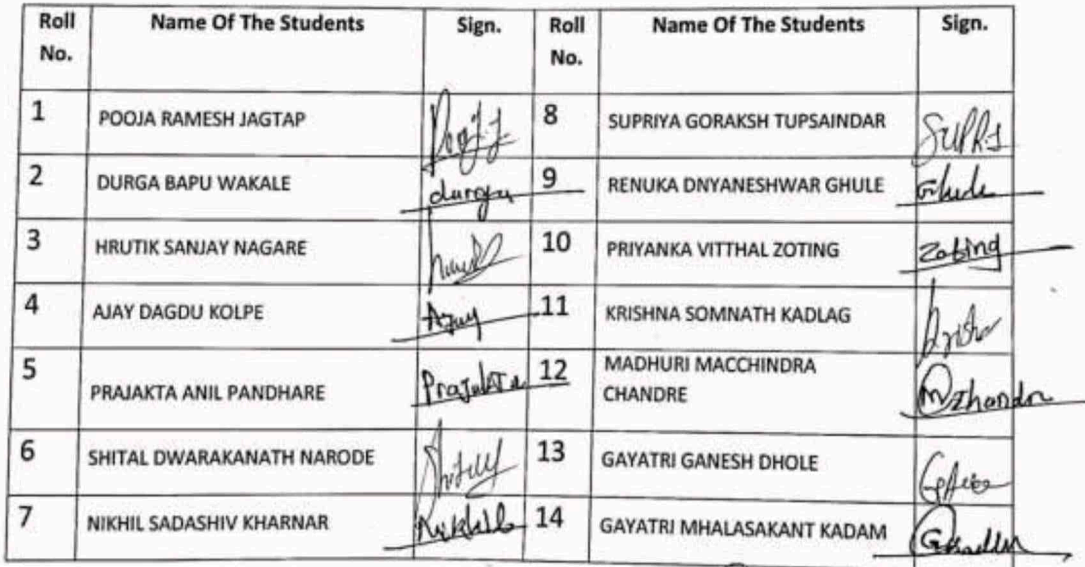 Roll No. Name Of The Students Sign. Roll No. Name Of The Students Sign.
1 POOJA RAMESH JAGTAP Pooja J 8 SUPRIYA GORAKSH TUPSAINDAR
2 DURGA BAPU WAKALE durga 9 RENUKA DNYANESHWAR GHULE Ghule
3 HRUTIK SANJAY NAGARE 10 PRIYANKA VITTHAL ZOTING Zoting
4 AJAY DAGDU KOLPE Ajay 11 KRISHNA SOMNATH KADLAG
5 PRAJAKTA ANIL PANDHARE Prajakta 12 MADHURI MACCHINDRA
CHANDRE
6 SHITAL DWARAKANATH NARODE 13 GAYATRI GANESH DHOLE
7 NIKHIL SADASHIV KHARNAR 14 GAYATRI MHALASAKANT KADAM